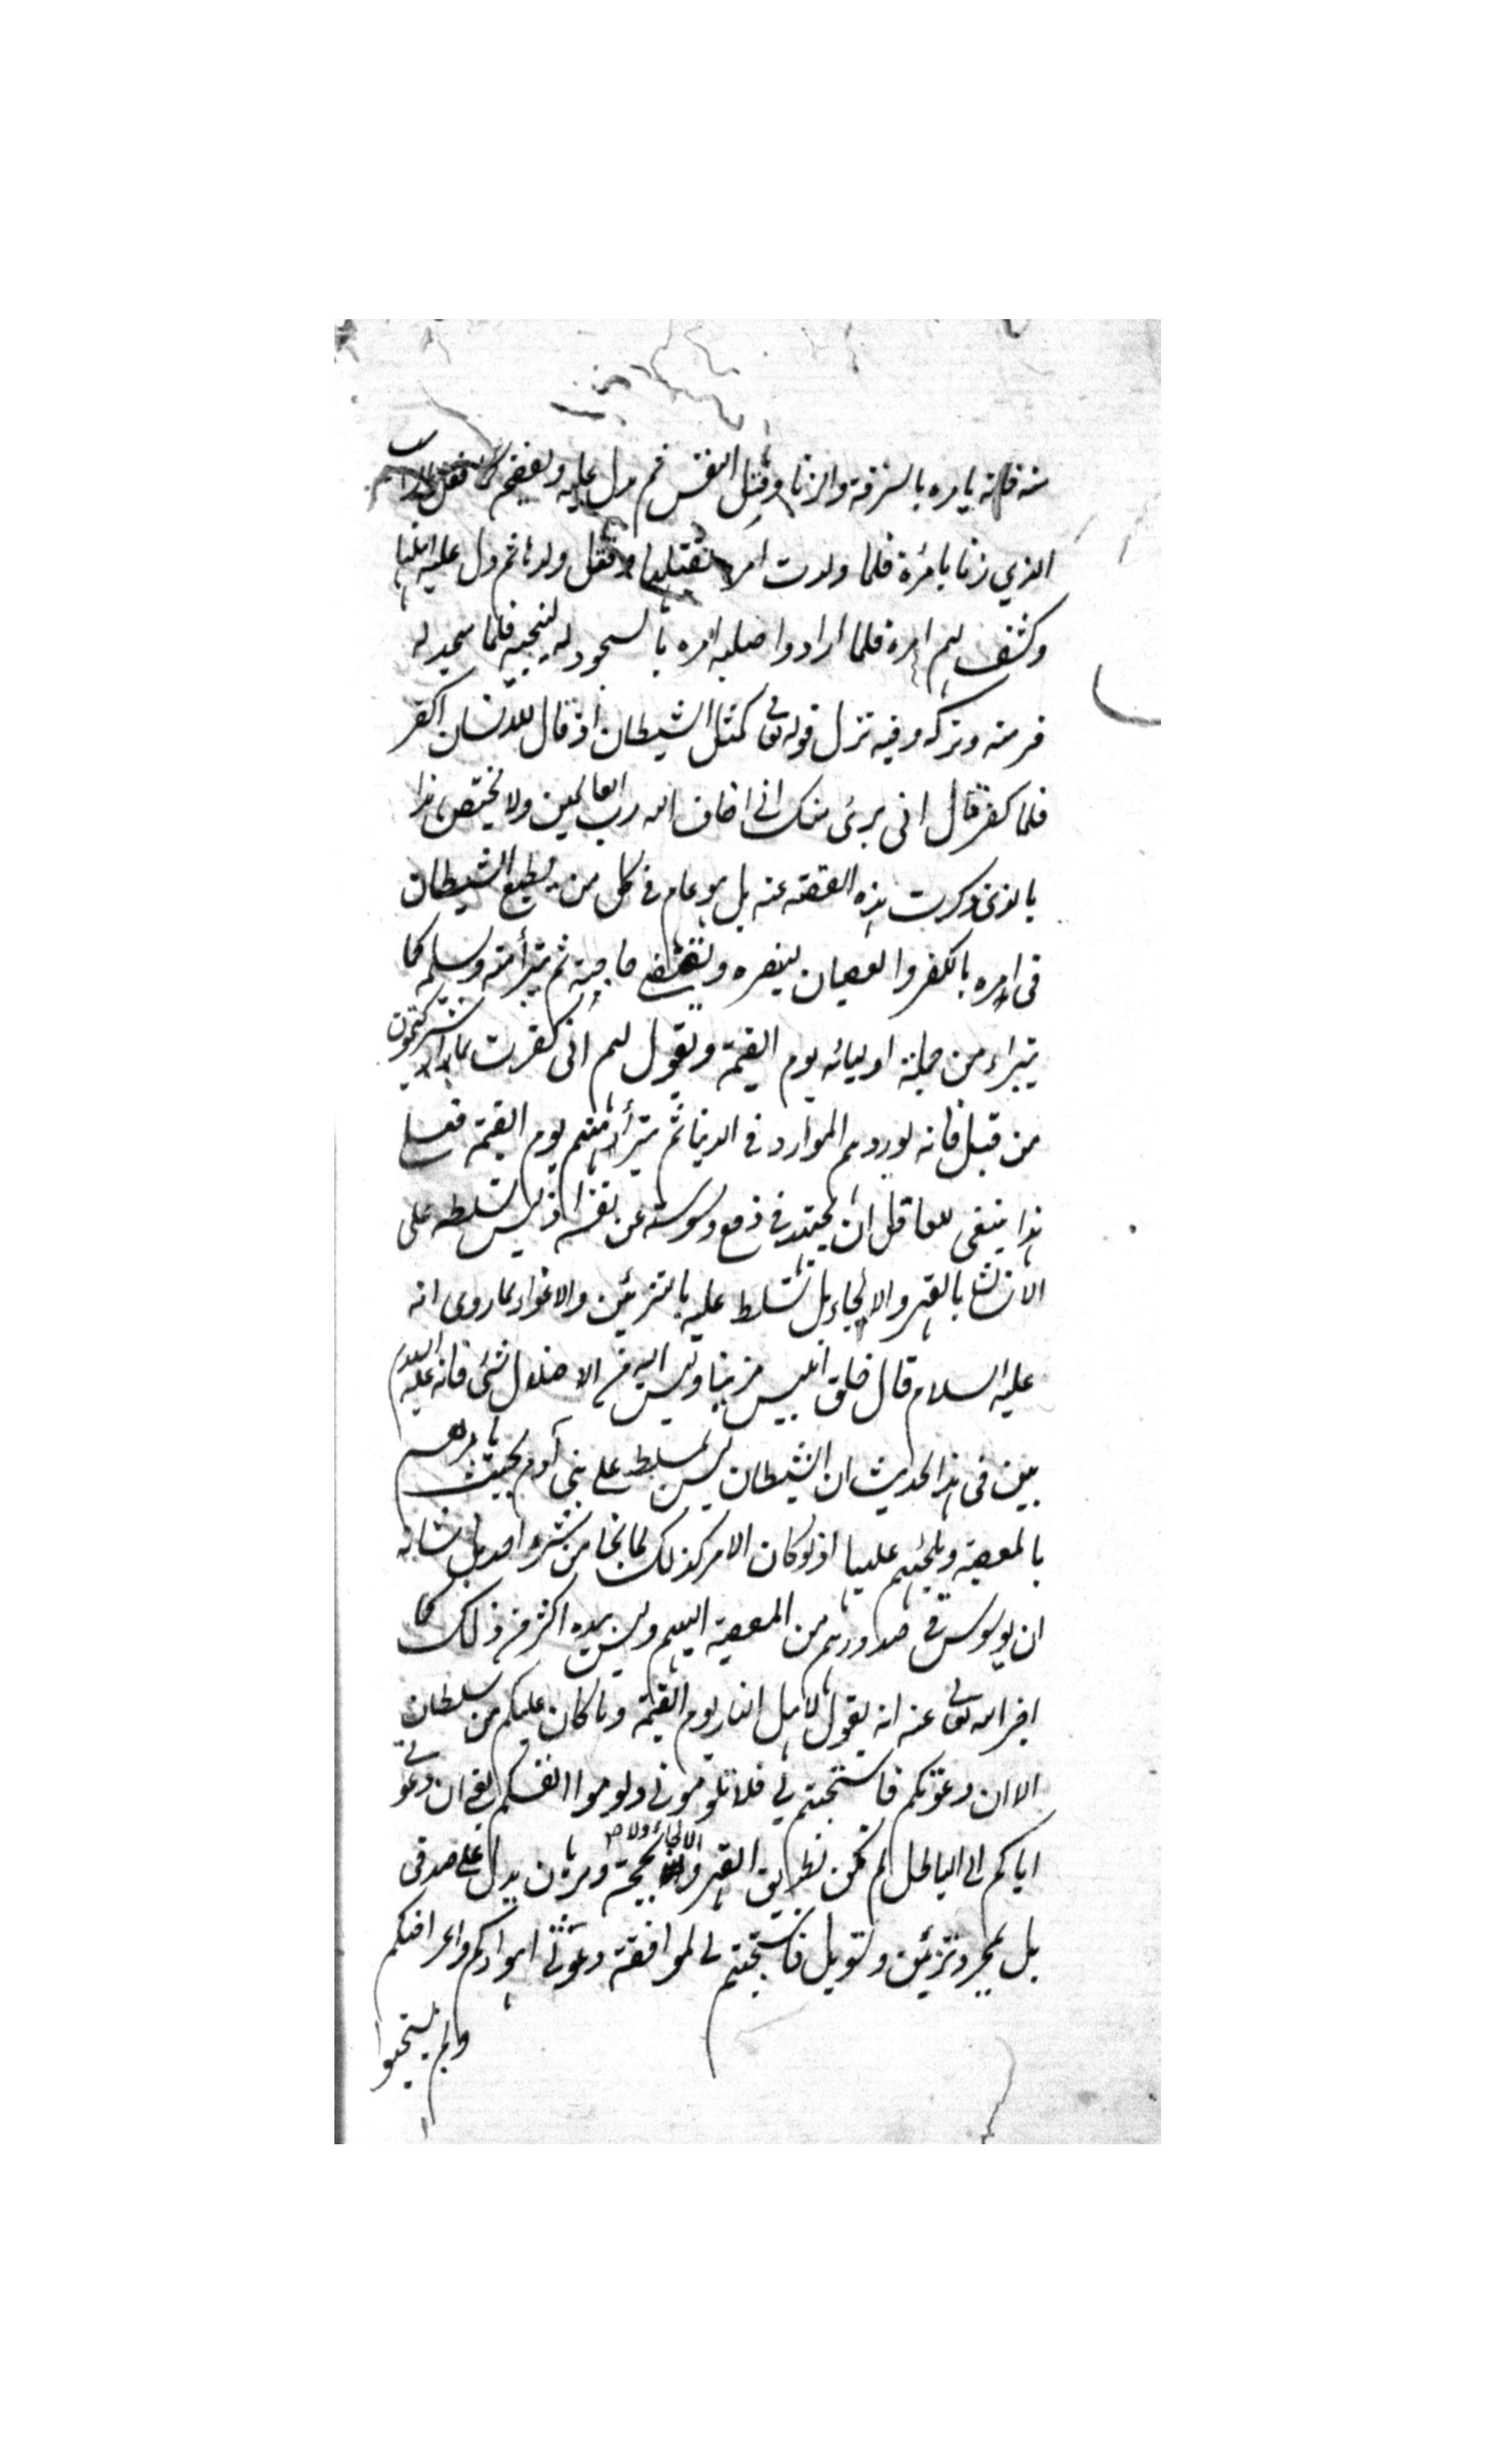 منه فانه يامره بالسرقة والزنا وقتل النفس ثم يدل عليه ويفضحه كما فعل بالراهب
الذي زنا بامرأة فلما ولدت امره بقتلها وقتل ولدها ثم دل عليه اهلها
وكشف لهم امره فلما ارادوا صلبه امره بالسجود له لينجيه فلما سجد له
فر منه وتركه وفيه نزل قوله تعالى كمثل الشيطان اذ قال للانسان اكفر
فلما كفر قال اني برئ منك اني اخاف الله رب العالمين ولا يختص هذا
بالذي ذكرت هذه القصة عنه بل هو عام في كل من يطيع الشيطان
في امره بالكفر والعصيان لينصره ويقضي حاجته ثم يتبرأ منه ويسلمه كما
يتبراء من جملة اوليائه يوم القيمة ويقول لهم اني كفرت بما اشركتمون
من قبل فانه يوردهم الموارد في الدنيا ثم يتبرأ منهم يوم القيمة فعلى
هذا ينبغي للعاقل ان يجتهد في دفع وسوسته عن نفسه اذ ليس تسلطه على
الانسان بالقهر والالجاء بل تسلط عليه بالتزيين والاغواء لما روى انه
عليه السلام قال خلق ابليس مزينا وليس اليه من الاضلال شئ فانه عليه السلام
بين في هذا الحديث ان الشيطان ليس بمسلط على بني آدم بحيث يامرهم
بالمعصية ويلجئهم عليها اذ لو كان الامر كذلك لما نجا من شره احد بل شانه
ان يوسوس في صدورهم من المعصية اليهم وليس بيده اكثر من ذلك كما
اخبر الله تعالى عنه انه يقول لاهل النار يوم القيمة وما كان عليكم من سلطان
الا ان دعوتكم فاستجبتم لي فلا تلوموني ولوموا انفسكم يعني ان دعوتي
اياكم الى الباطل لم تكن بطريق القهر والالجاء ولا بحجة وبرهان يدل على صدقي
بل بمجرد تزيين وتسويل فاستجبتم لي لموافقة دعوتي اهواءكم واغراضكم
ولم تستجيبوا